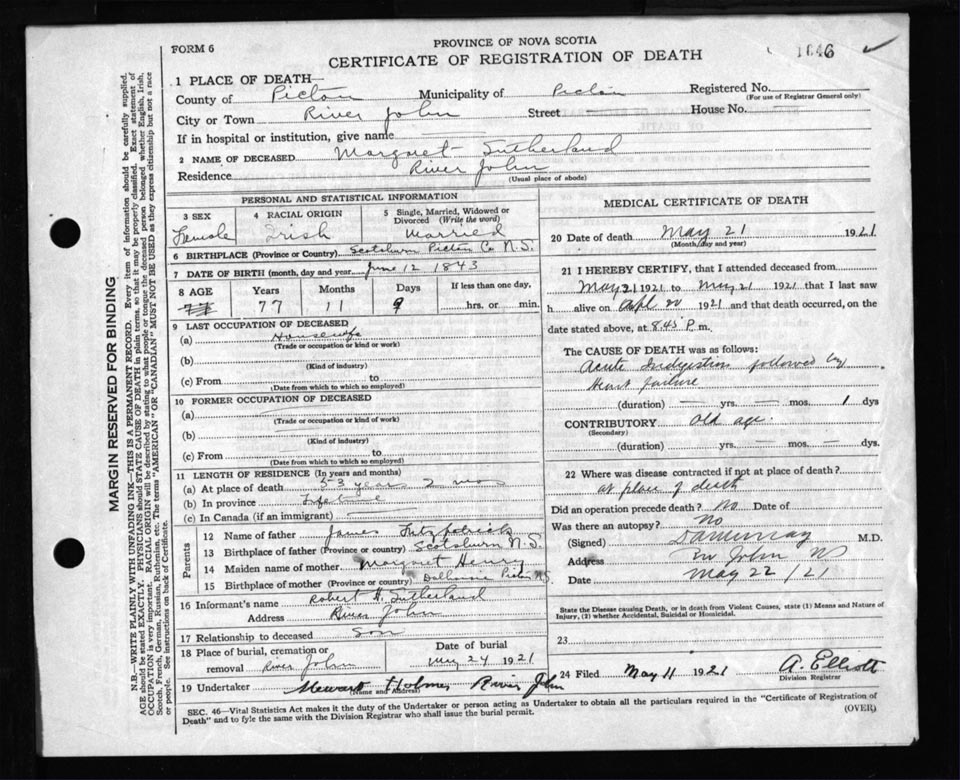 FORM 6
PROVINCE OF NOVA SCOTIA
CERTIFICATE OF REGISTRATION OF DEATH
1646 ✓
1 PLACE OF DEATH—
County of Pictou Municipality of Pictou Registered No.
(For use of Registrar General only)
City or Town River John Street House No.
If in hospital or institution, give name
2 NAME OF DECEASED Margaret Sutherland
Residence River John
(Usual place of abode)
PERSONAL AND STATISTICAL INFORMATION
3 SEX Female
4 RACIAL ORIGIN Irish
5 Single, Married, Widowed or Divorced (Write the word) Married
6 BIRTHPLACE (Province or Country) Scotsburn Pictou Co N.S.
7 DATE OF BIRTH (month, day and year June 12 1843
8 AGE 77 Years 77 Months 11 Days 9 If less than one day, hrs. or min.
9 LAST OCCUPATION OF DECEASED
(a) Housewife
(Trade or occupation or kind or work)
(b)
(Kind of industry)
(c) From to
(Date from which to which so employed)
10 FORMER OCCUPATION OF DECEASED
(a)
(Trade or occupation or kind of work)
(b)
(Kind of industry)
(c) From to
(Date from which to which so employed)
11 LENGTH OF RESIDENCE (In years and months)
(a) At place of death 53 years 2 mos
(b) In province Lifetime
(c) In Canada (if an immigrant)
Parents
12 Name of father James Fitzpatrick
13 Birthplace of father (Province or country) Scotsburn N.S.
14 Maiden name of mother Margaret Henry
15 Birthplace of mother (Province or country) Dalhousie Pictou N.S.
16 Informant's name Robert H. Sutherland
Address River John
17 Relationship to deceased Son
18 Place of burial, cremation or removal River John
Date of burial May 24 1921
19 Undertaker Holmes River John
(Name and Address)
MEDICAL CERTIFICATE OF DEATH
20 Date of death May 21 1921
(Month, day and year)
21 I HEREBY CERTIFY, that I attended deceased from
May 21 1921 to May 21 1921 that I last saw
h alive on Apl 20 1921 and that death occurred, on
date stated above, at 8.45 P.m.
The CAUSE OF DEATH was as follows:
Acute Indigestion followed by
Heart failure
(duration) — yrs. — mos. 1 dys
CONTRIBUTORY Old age.
(Secondary)
(duration) — yrs. — mos. — dys.
22 Where was disease contracted if not at place of death?
at place of death
Did an operation precede death? No Date of
Was there an autopsy? No
(Signed) M.D.
Address John NS
Date May 22 /21
State the Disease causing Death, or in death from Violent Causes, state (1) Means and Nature of
Injury, (2) whether Accidental, Suicidal or Homicidal.
23
24 Filed May 11 1921 A. Elliott
Division Registrar
SEC. 46—Vital Statistics Act makes it the duty of the Undertaker or person acting as Undertaker to obtain all the particulars required in the "Certificate of Registration of
Death" and to fyle the same with the Division Registrar who shall issue the burial permit.
(OVER)
MARGIN RESERVED FOR BINDING
N.B.—WRITE PLAINLY WITH UNFADING INK—THIS IS A PERMANENT RECORD. Every item of information should be carefully supplied.
AGE should be stated EXACTLY. PHYSICIANS should STATE CAUSE OF DEATH in plain terms, so that it may be properly classified. Exact statement of
OCCUPATION is very important. RACIAL ORIGIN will be described by stating to what people or tongue the deceased person belonged whether English, Irish,
Scotch, French, German, Russian, Ruthenian, etc. The terms "AMERICAN" OR "CANADIAN" MUST NOT BE USED as they express citizenship but not a race
or people. See instructions on back of Certificate.